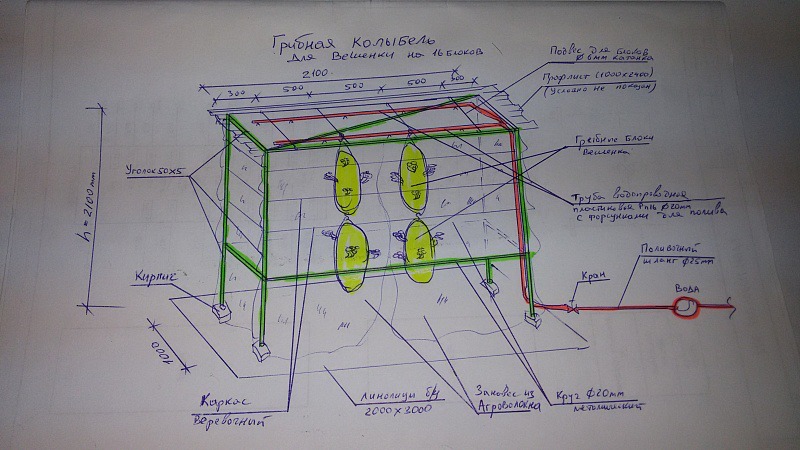 Грибная Колыбель
для Вешенки на 16 блоков
2100
300
500
500
500
300
Подвес для блоков
Ø6мм катанка
Профлист (1000×2400)
(Условно не показан)
Грибные блоки
Вешенка
Уголок 50×5
h = 2100мм
Труба водопроводная
пластиковая Ø20мм
с форсунками для полива
Поливочный
шланг Ø25мм
Кран
Вода
Кирпич
1000
Каркас
Веревочный
Линолиум б/у
2000×3000
Занавес из
Агроволокна
Круг Ø20мм
металлический